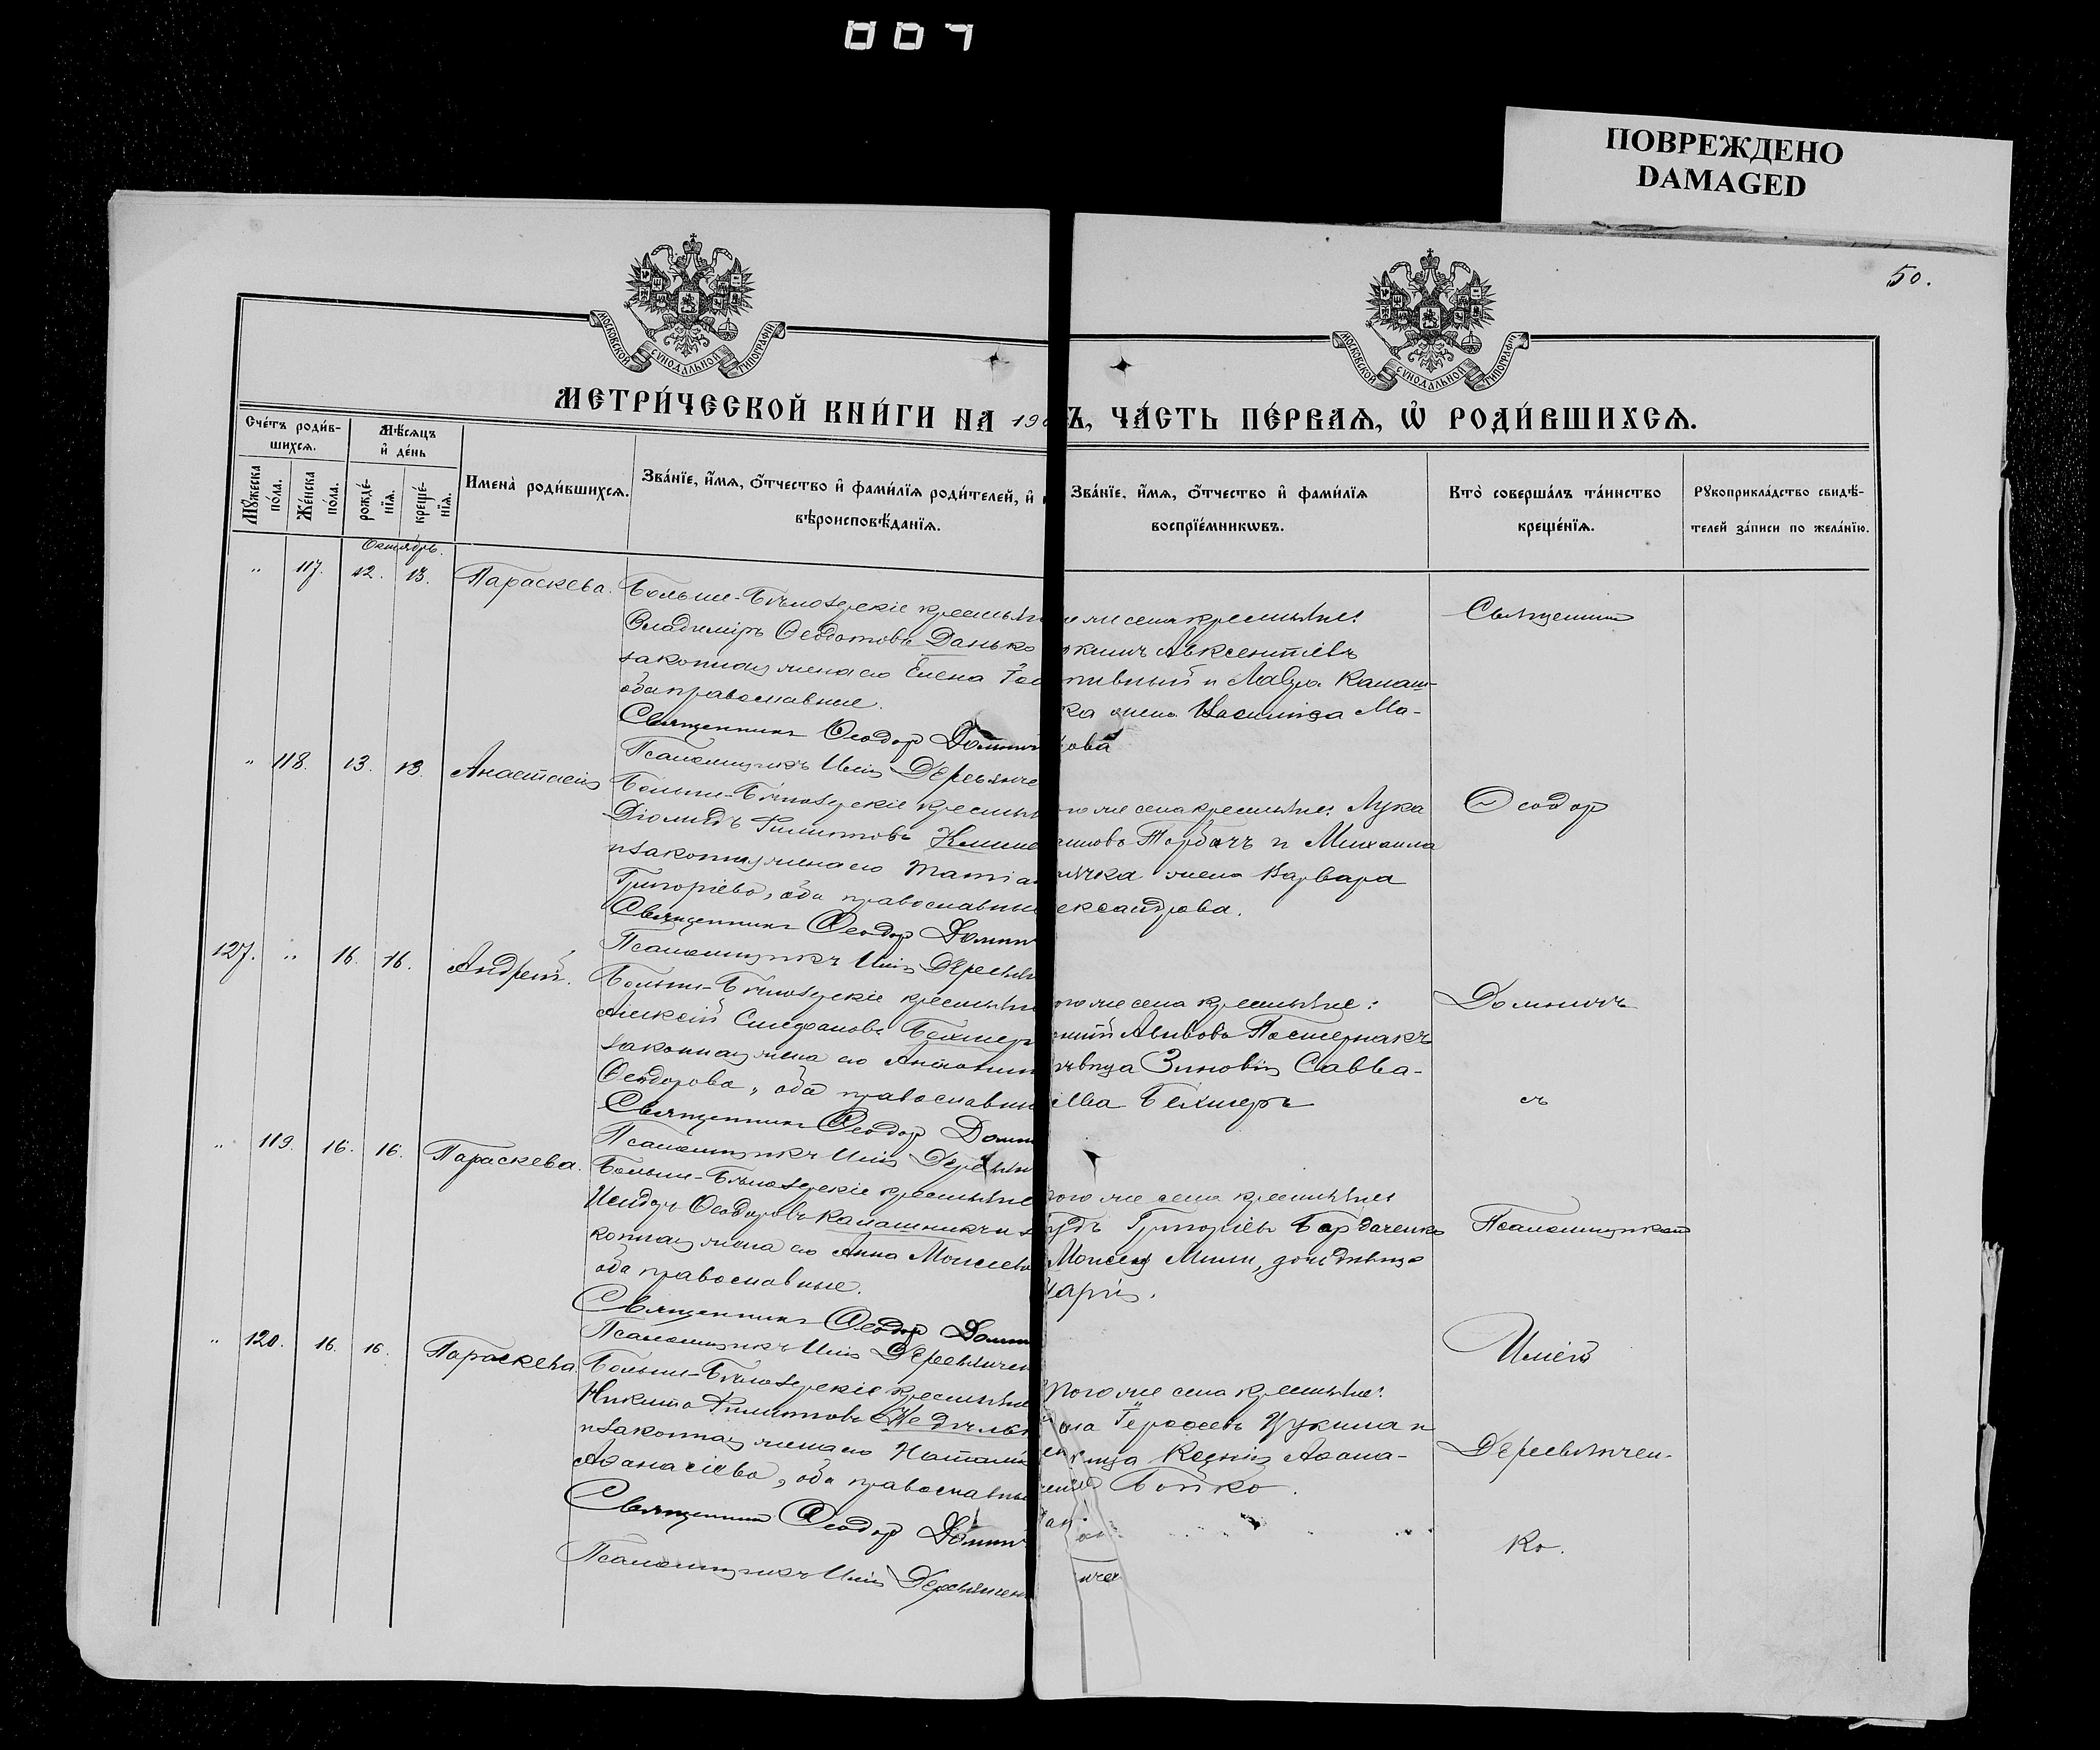 007
ПОВРЕЖДЕНО
DAMAGED
50.
МОСКОВСКОЙ СѴНОДАЛЬНОЙ ТИПОГРАФІИ
МОСКОВСКОЙ СѴНОДАЛЬНОЙ ТИПОГРАФІИ
МЕТРИ́ЧЕСКОЙ КНИ́ГИ НА 190
Ъ, ЧА́СТЬ ПЕ́РВАѦ, Ѡ РОДИ́ВШИХСѦ.
Сче́тъ роди́в-
шихсѧ.
Мѣ́сѧцъ
и҆ де́нь
Мꙋ́жеска по́ла.
Же́нска по́ла.
рожде́-
нїѧ.
креще́-
нїѧ.
Имена̀ роди́вшихсѧ.
Зва́нїе, и҆́мѧ, ѻ҆́тчество и҆ фами́лїѧ роди́телей, и҆
вѣроисповѣ́данїѧ.
Зва́нїе, и҆́мѧ, ѻ҆́тчество и҆ фами́лїѧ
воспрїе́мникѡвъ.
Кто̀ соверша́лъ та́инство
креще́нїѧ.
Рꙋкоприкла́дство свидѣ́-
телей за́писи по жела́нїю.
Октябрь.
" 117. 12. 13. Параскева.
Больше-Бѣлозерскіе крестьян
Владиміръ Ѳеодотовъ Данько
законная жена его Елена
оба православные.
Священникъ Ѳеодор Домнич
Псаломщикъ Илія Деревянче
же села крестьяне:
Авксентіевъ
и Лавра Калаш-
ка жена Василиса Ма-
ова
Священник
" 118. 13. 13. Анастасія
Больше-Бѣлозерскіе крестьян
Діомидъ Филиповъ
и законная жена его Татіа
Григоріева, оба православны
Священникъ Ѳеодор Домни
Псаломщикъ Илія Деревян
ого же села крестьяне: Лука
Торбачъ и Михаила
жена Варвара
ександрова.
Ѳеодор
127. " 16. 16. Андрей.
Больше-Бѣлозерскіе крестьян
Алексій Стефановъ Бехтер
законная жена его Антонин
Ѳеодорова, оба православны
Священникъ Ѳеодор Домн
Псаломщикъ Илія Деревян
ого же села крестьяне:
Пастернакъ
дѣвица Зиновія Савва-
ева Бехтеръ
Домничъ
съ
" 119. 16. 16. Параскева.
Больше-Бѣлозерскіе крестьяне
Исидоръ Ѳеодоровъ Калашникъ и з
конная жена его Анна Моисеева
оба православные.
Священникъ Ѳеодор Домн
Псаломщикъ Илія Деревянчен
того же села крестьяне
Григоріевъ Бордаченко
Моисея дочь дѣвица
Марія.
Псаломщиком
Иліей
" 120. 16. 16. Параскева
Больше-Бѣлозерскіе крестьяне
Никита Филиповъ Недѣльк
и законная жена его Наталія
Аѳанасіева, оба православны
Священникъ Ѳеодор Домнич
Псаломщикъ Илія Деревянчен
того же села крестьяне:
Ероѳеевъ Цукила и
вица Ксенія Аѳана-
Бойко.
Деревянчен-
ко.